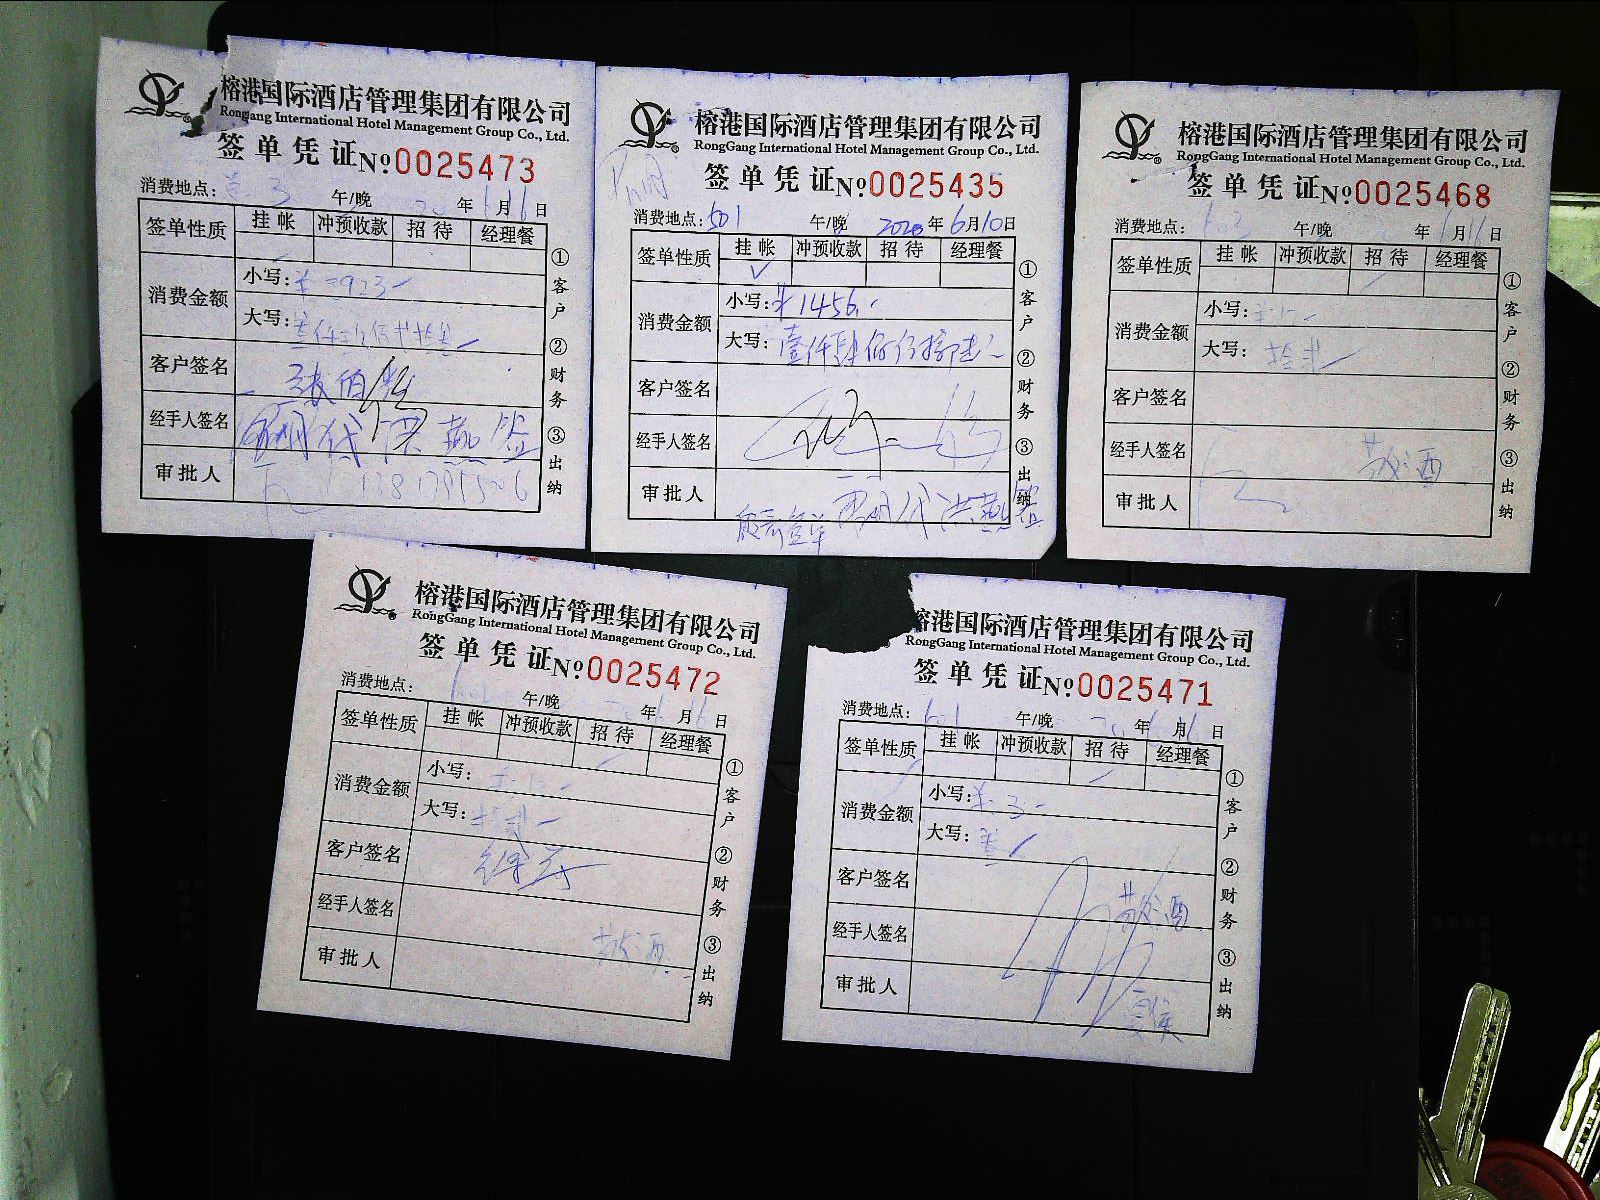 榕港国际酒店管理集团有限公司
RongGang International Hotel Management Group Co., Ltd.
签单凭证 №0025473
消费地点: 午/晚 20 年 6 月 16 日
签单性质 挂帐 冲预收款 招待 经理餐
消费金额 小写:
大写:
客户签名 张伯
经手人签名 代洪燕签
审批人
①客户 ②财务 ③出纳
榕港国际酒店管理集团有限公司
RongGang International Hotel Management Group Co., Ltd.
签单凭证 №0025435
消费地点: 501 午/晚 2020 年 6 月 10 日
签单性质 挂帐 冲预收款 招待 经理餐
✓
消费金额 小写: ¥1456.-
大写: 壹仟肆佰伍拾陆
客户签名
经手人签名
审批人
代洪燕签
①客户 ②财务 ③出纳
榕港国际酒店管理集团有限公司
RongGang International Hotel Management Group Co., Ltd.
签单凭证 №0025468
消费地点: 603 午/晚 年 6 月 16 日
签单性质 挂帐 冲预收款 招待 经理餐
消费金额 小写:
大写: 拾贰
客户签名
经手人签名 敬酒
审批人
①客户 ②财务 ③出纳
榕港国际酒店管理集团有限公司
RongGang International Hotel Management Group Co., Ltd.
签单凭证 №0025472
消费地点: 午/晚 20 年 6 月 16 日
签单性质 挂帐 冲预收款 招待 经理餐
消费金额 小写:
大写: 拾贰
客户签名
经手人签名
敬酒
审批人
①客户 ②财务 ③出纳
榕港国际酒店管理集团有限公司
RongGang International Hotel Management Group Co., Ltd.
签单凭证 №0025471
消费地点: 601 午/晚 20 年 6 月 16 日
签单性质 挂帐 冲预收款 招待 经理餐
消费金额 小写:
大写:
客户签名 敬酒
经手人签名
审批人
①客户 ②财务 ③出纳